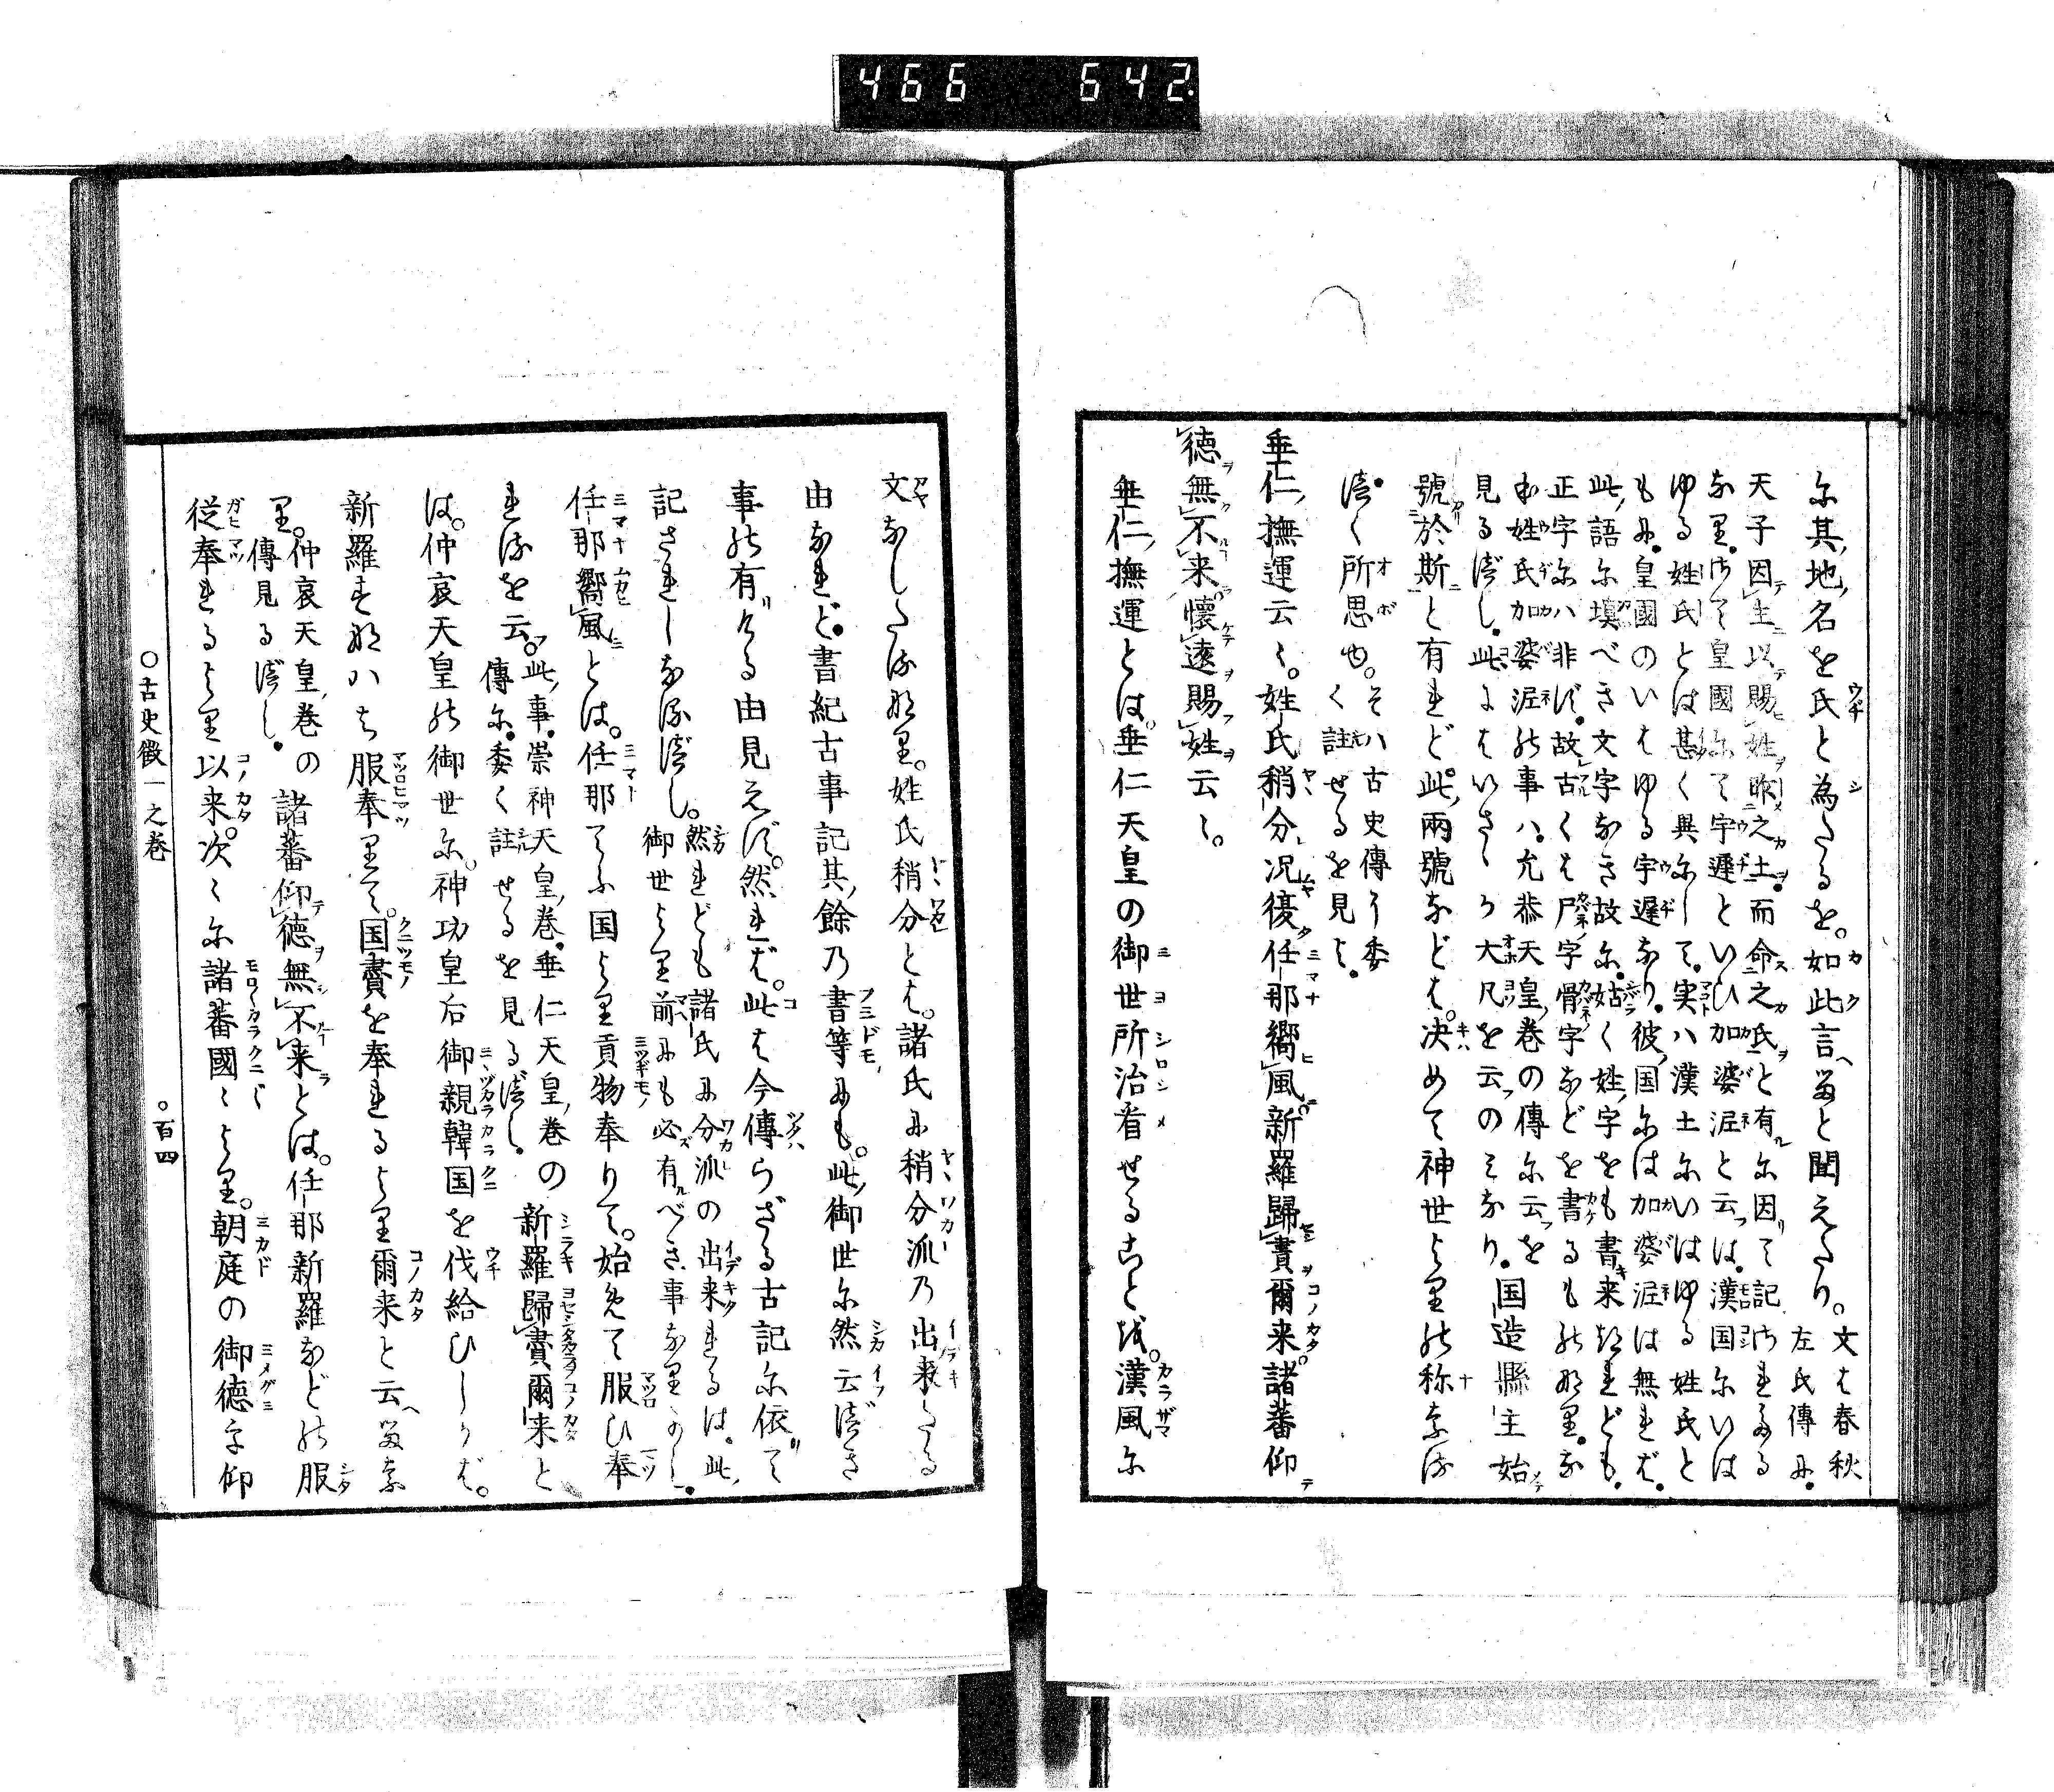 466 642.
尓其地名を氏と為たるを。如此言へりと聞えたり。文は春秋
左氏傳に。
天子因主以賜姓胙之土。而命之氏と有るに因て記されたる
なり。さて皇國にて宇遅といひ加婆泥と云ふは。漢国にいは
ゆる姓氏とは甚く異にして。実ハ漢土にいはゆる姓氏と
もに。皇國のいはゆる宇遅なり。彼国には加婆泥は無れば。
此語に填べき文字なき故に。姑く姓字をも書来れども。
正字にハ非ず。故古くは尸字骨字などを書るも
姓氏加婆泥の事ハ。允恭天皇巻の傳に云ふを
見るべし。此にはいさゝか大凡を云ふのみなり。国造縣主始
號於斯と有れど。此両號などは。决めて神世より の称なる
べく所思也。そハ古史傳に委
く註せるを見よ。
垂仁撫運云々。姓氏稍分。况復任那嚮風。新羅歸賚爾来。諸蕃仰
徳無不来。懐遠賜姓云々。
垂仁撫運とは。垂仁天皇の御世所治看せること を。漢風に
文なしたるなり。姓氏稍分とは。諸氏に稍分派の出来たる
由なれど。書紀古事記其餘の書等にも。此御世に然云べき
事の有ける由見えず。然れば。此は今傳らざる古記に依て
記されしなるべし。然れども諸氏に分派の出来れるは。此
御世より前にも必有べき事なりかし。
任那嚮風とは。任那てふ国より貢物奉りて。始めて服ひ奉
れるを云。此事。崇神天皇巻。垂仁天皇巻の
傳に。委く註せるを見るべし。新羅歸賚爾来と
は。仲哀天皇の御世に。神功皇后御親韓国を伐給ひしかば。
新羅 服奉りて。国賚を奉れるより爾来と云へるな
り。仲哀天皇巻の
傳見るべし。諸蕃仰徳無不来とは。任那新羅などの服
従奉れるより以来。次々に諸蕃國々より。朝庭の御徳を仰
○古史徴一之巻
○百四